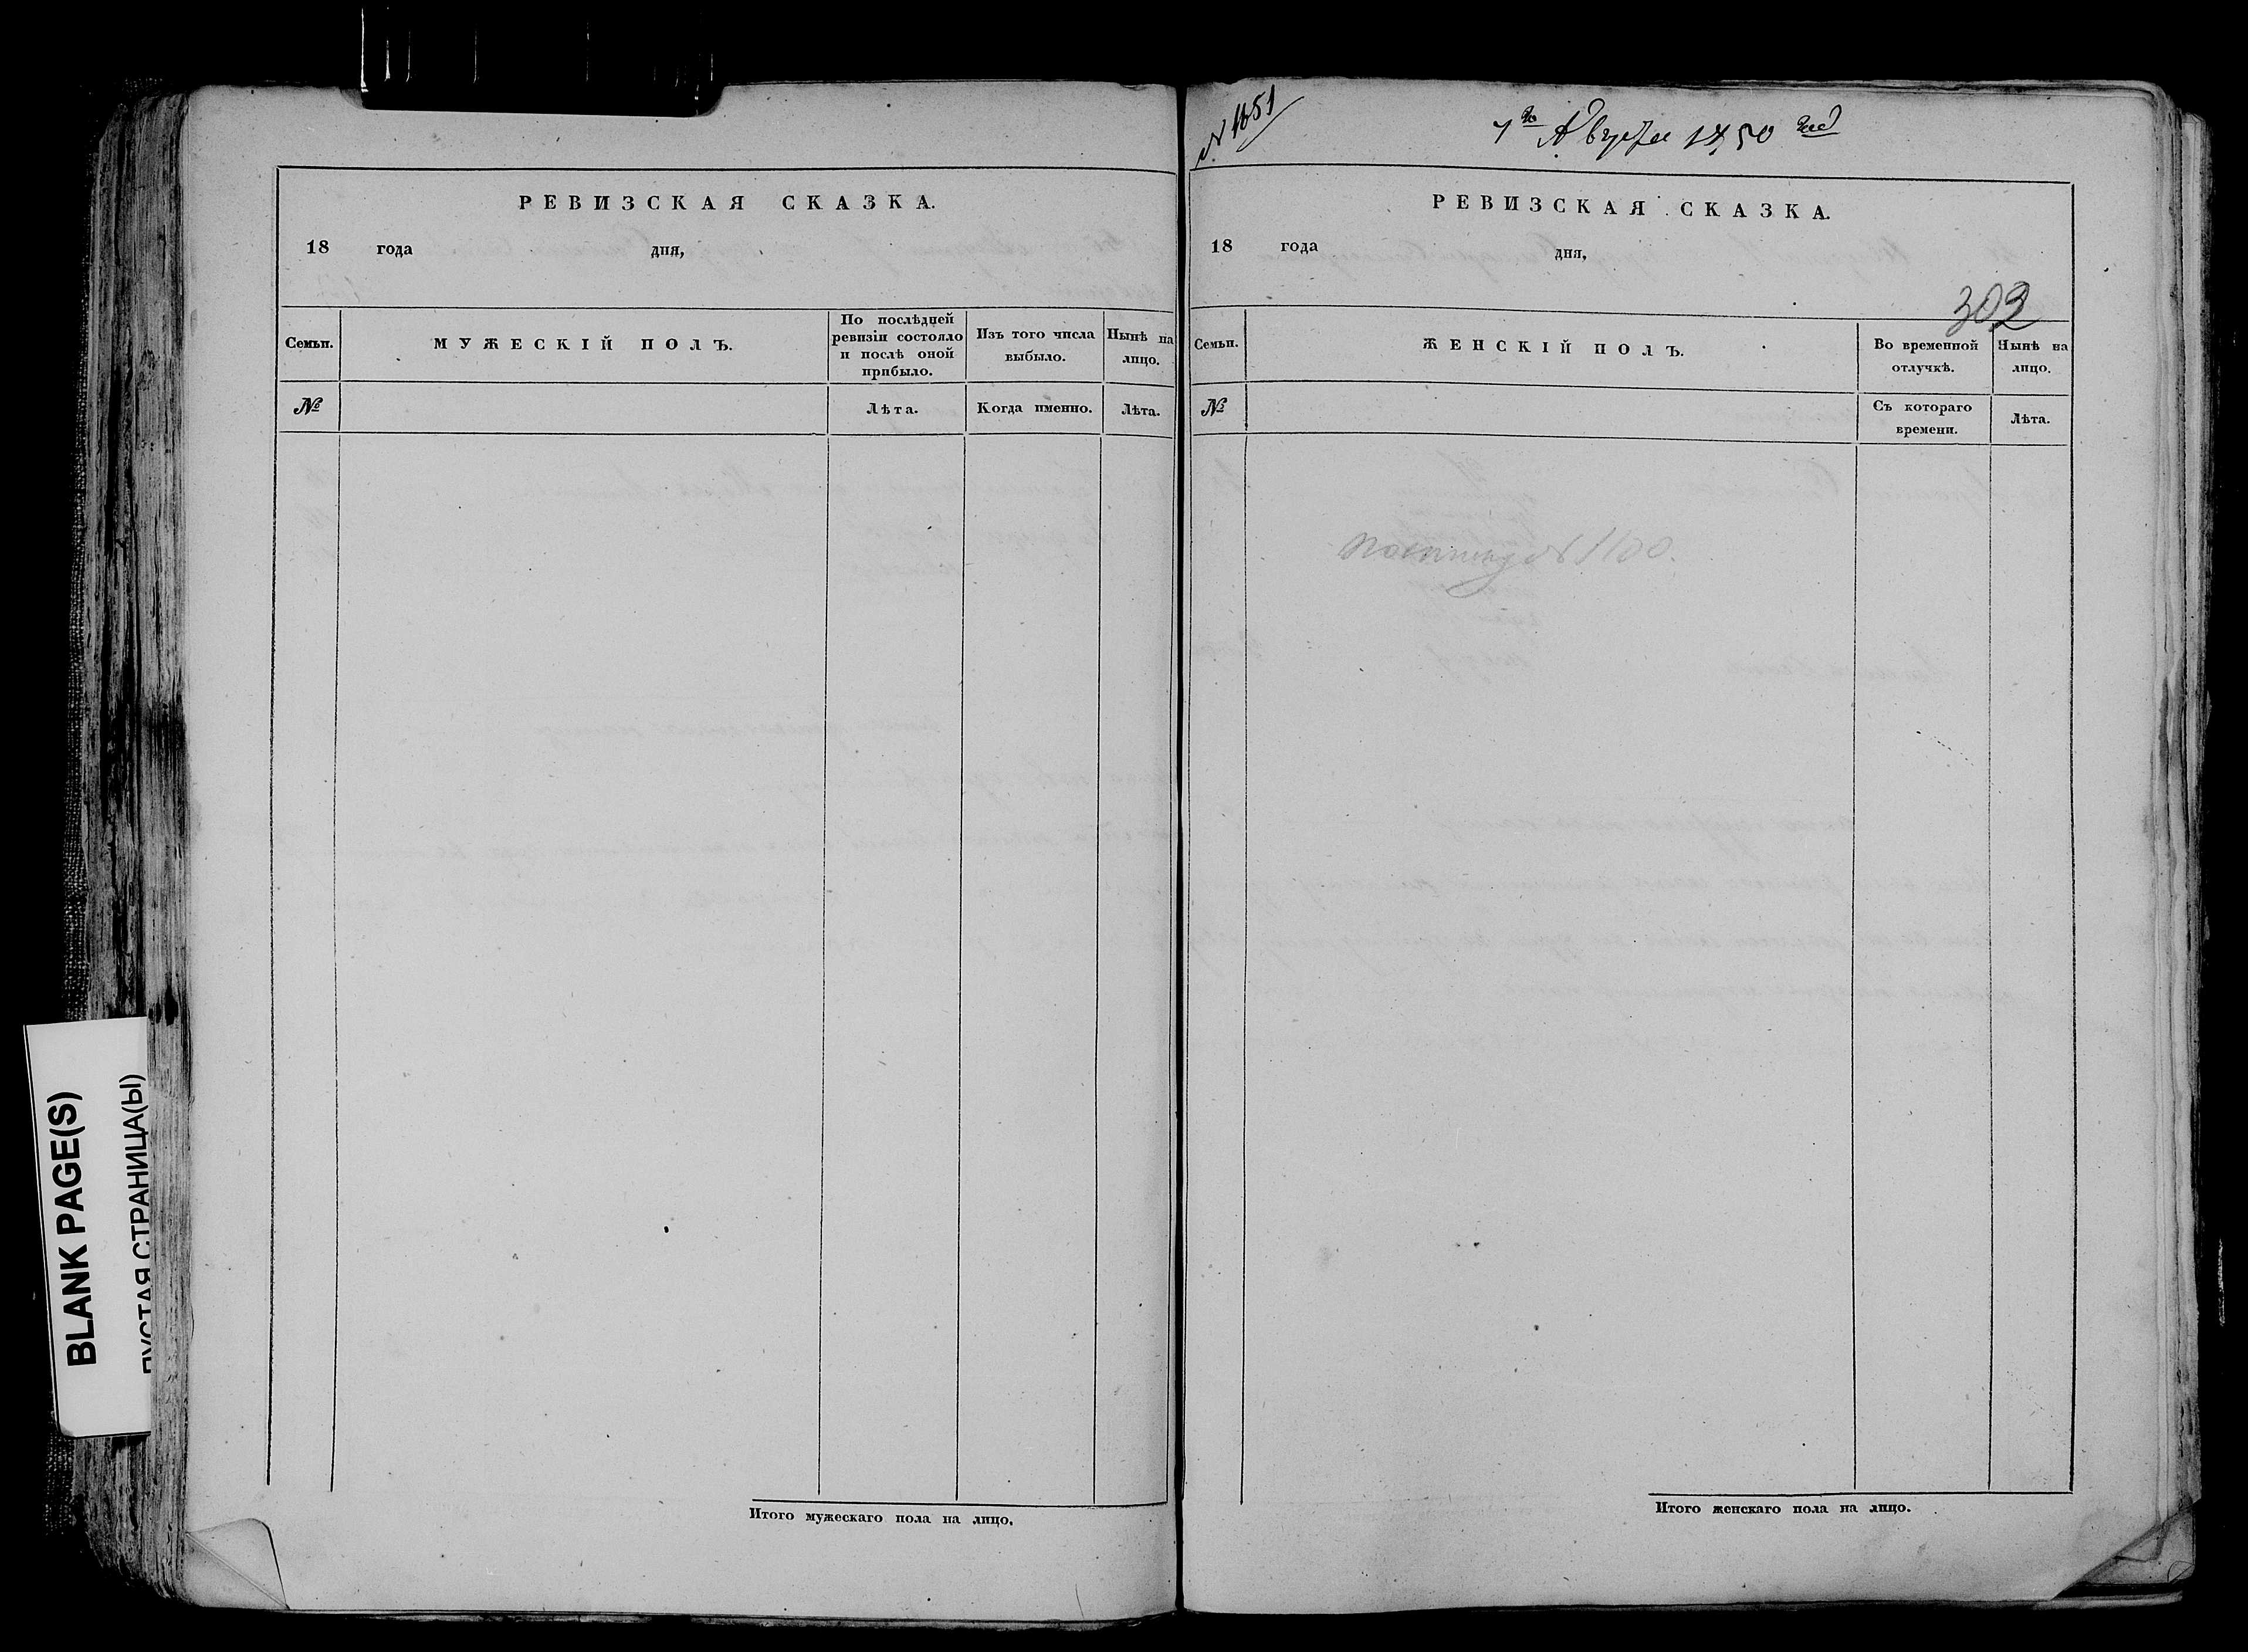 BLANK PAGE(S)
ПУСТАЯ СТРАНИЦА(Ы)
РЕВИЗСКАЯ СКАЗКА.
18 года дня,
Семьи.
МУЖЕСКІЙ ПОЛЪ.
По послѣдней
ревизіи состояло
и послѣ оной
прибыло.
Изъ того числа
выбыло.
Нынѣ на
лицо.
№
Лѣта.
Когда именно.
Лѣта.
Итого мужескаго пола на лицо.
№ 1651
1го Августа 1850 год
РЕВИЗСКАЯ СКАЗКА.
18 года дня,
302
Семьи.
ЖЕНСКІЙ ПОЛЪ.
Во временной
отлучкѣ.
Нынѣ на
лицо.
№
Съ котораго
времени.
Лѣта.
№ 1100.
Итого женскаго пола на лицо.